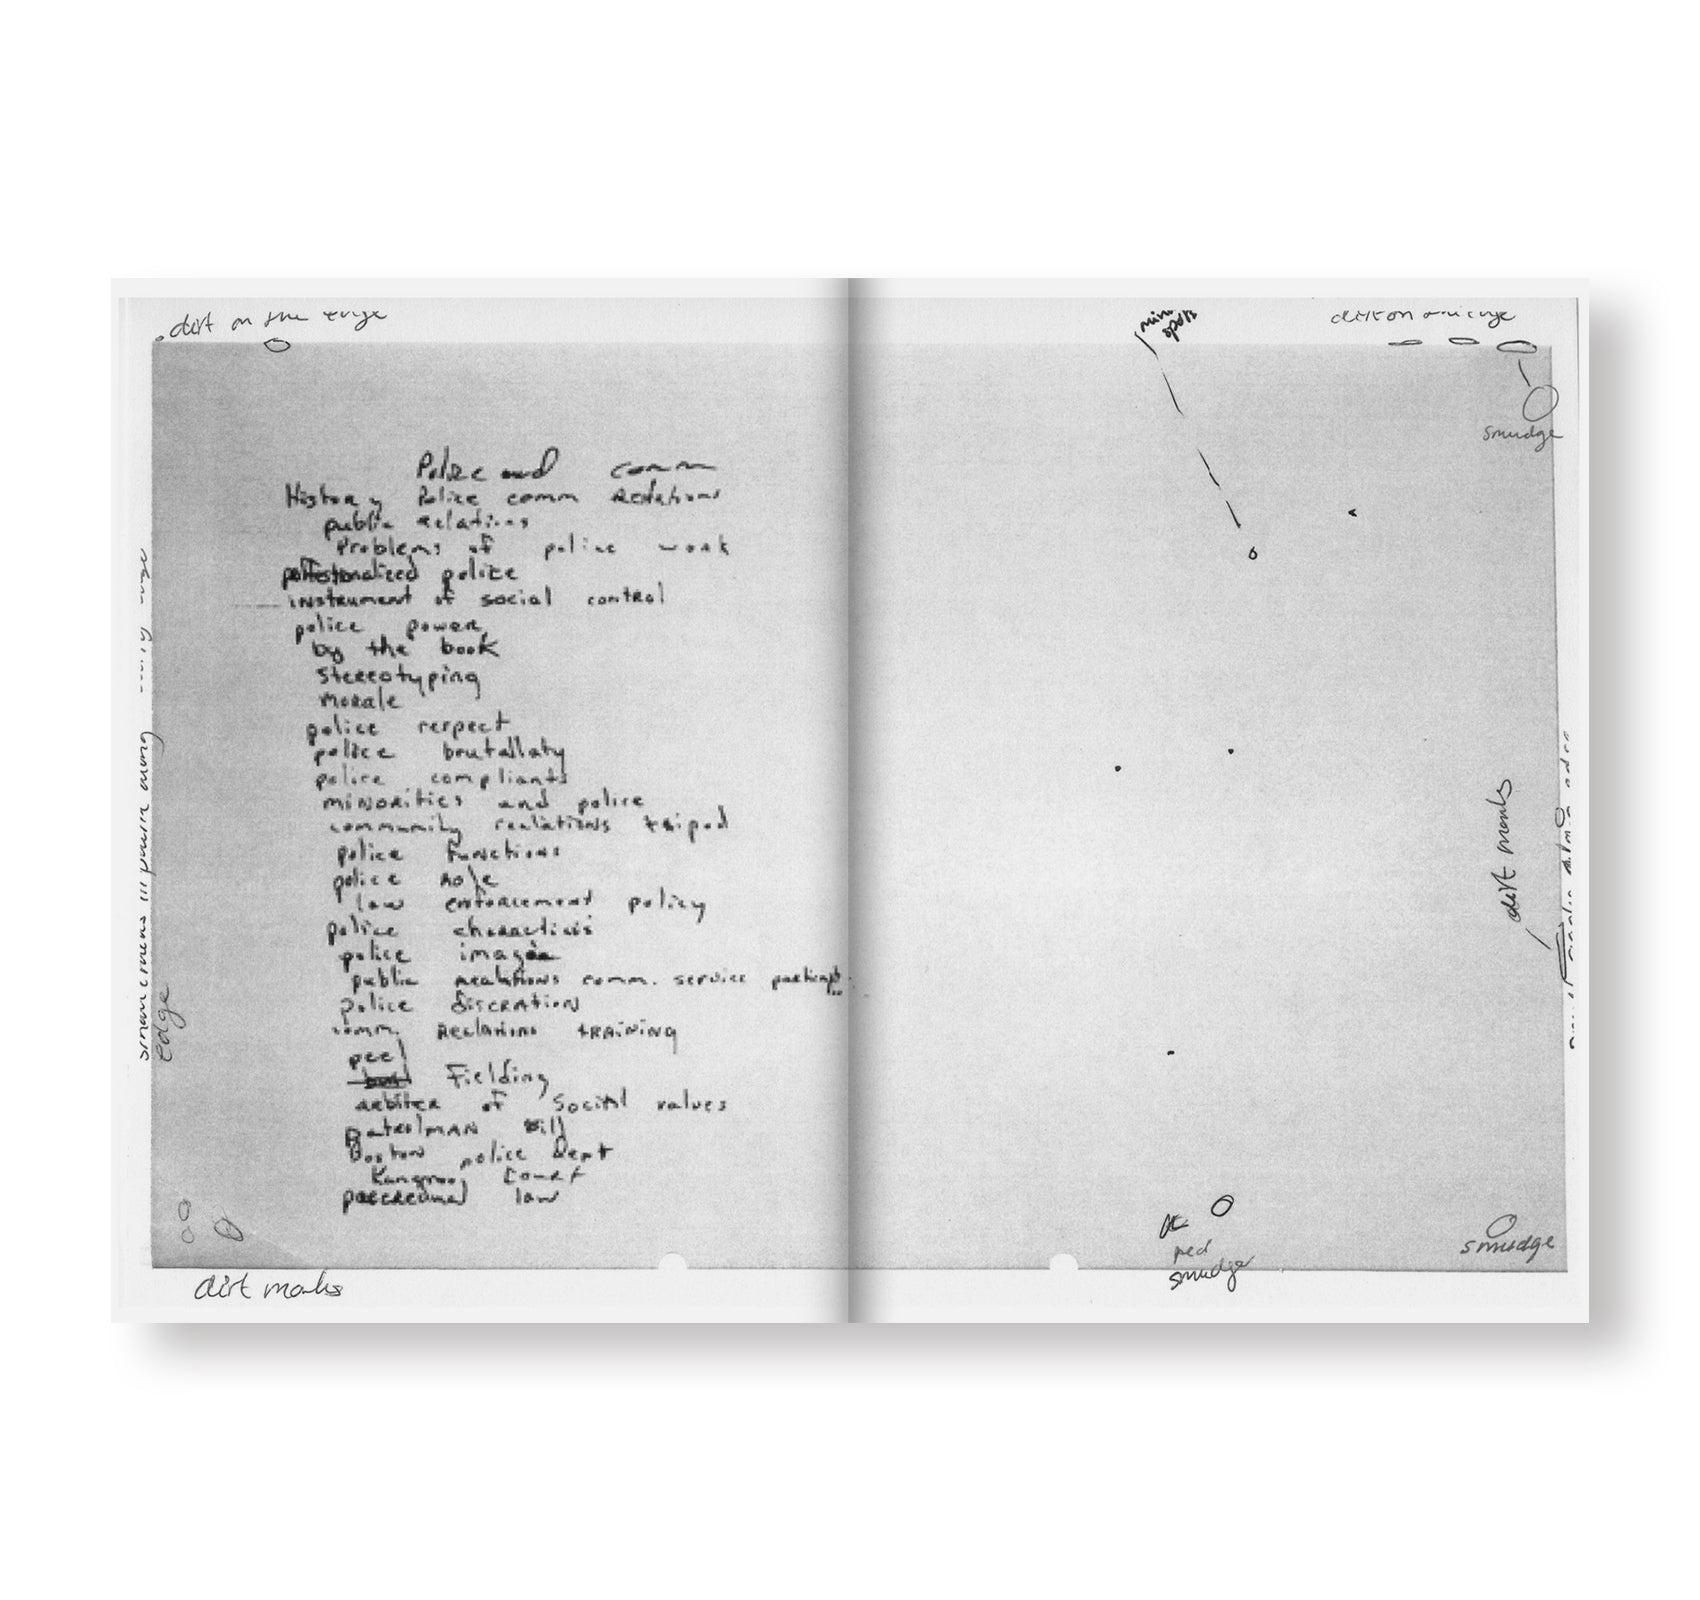 dirt on the edge
Police and comm
History Police comm Relations
public relations
Problems of police work
police
instrument of social control
police power
by the book
stereotyping
morale
police respect
police brutallaty
police compliants
minorities and police
community realations tripod
police functions
police role
law enforcement policy
police
police image
public realations comm. service
police discration
comm. Reclations tRAiNiNg
peel
Fielding
arbiter of Social values
patrolmAN Bill
Boston police Dept
Kangroo Court
law
edge
dirt marks
mini spots
smudge
dirt marks
red
smudge
smudge